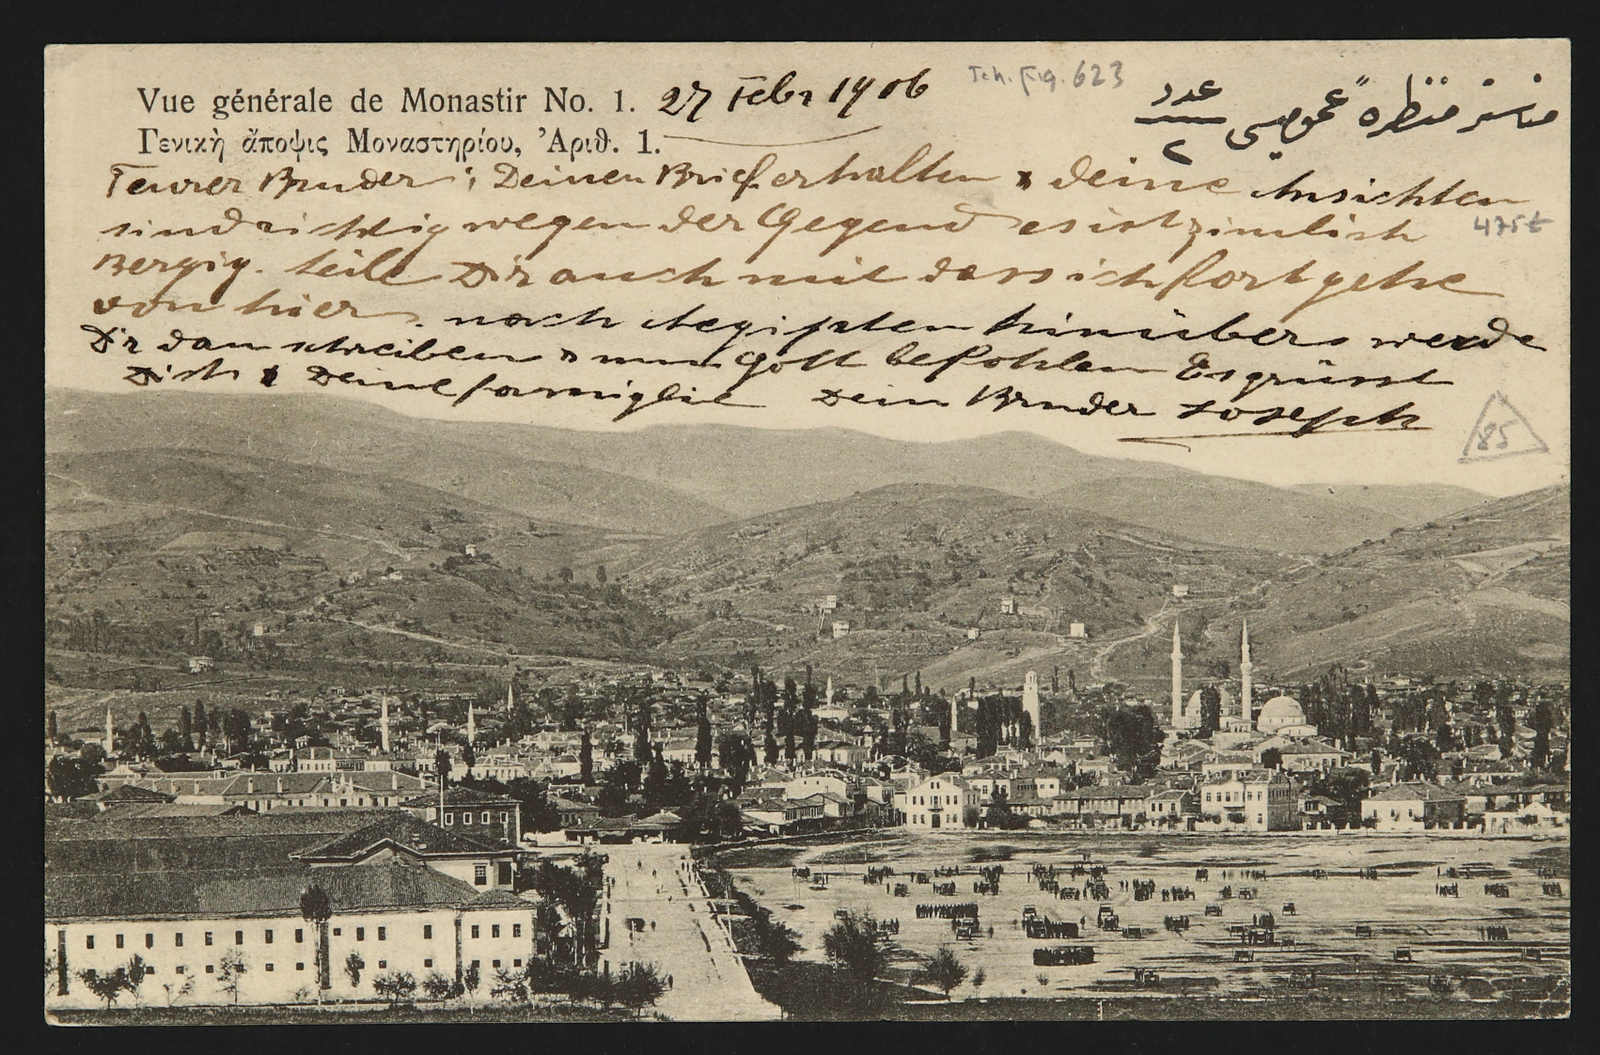 Vue générale de Monastir No. 1. 27 Febr 1906
Tch. Fig. 623
مناستر منظرهٔ عمومیسی عدد ٢
Γενικὴ ἄποψις Μοναστηρίου, Ἀριθ. 1.
Teurer Bruder; Deinen Brief erhalten & deine Ansichten
sind richtig wegen der Gegend es ist zimlich
475t
Bergig. teile Dir auch mit dass ich fort gehe
von hier. nach Aegipten hinüber werde
Dir dan schreiben & nun Gott befohlen Es grüsst
Dich & Deine famiglie Dein Bruder Joseph
85